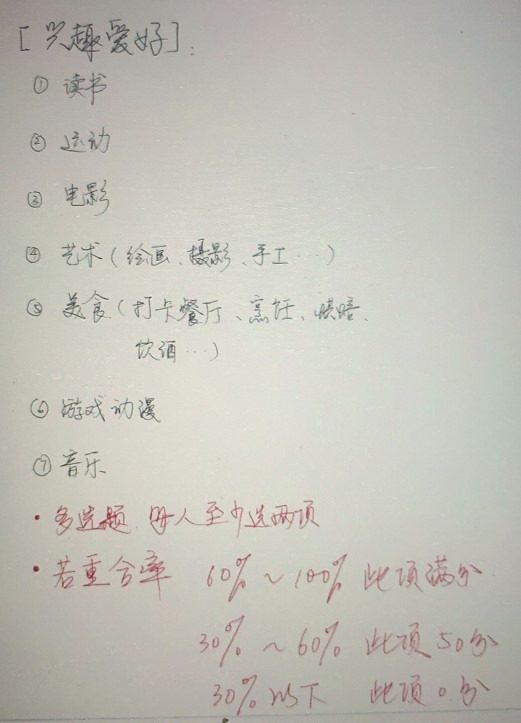 [兴趣爱好]:
① 读书
② 运动
③ 电影
④ 艺术(绘画、摄影、手工…)
⑤ 美食(打卡餐厅、烹饪、烘焙、
饮酒…)
⑥ 游戏动漫
⑦ 音乐
• 多选题,每人至少选两项
• 若重合率 60%~100% 此项满分
30%~60% 此项50分
30%以下 此项0分